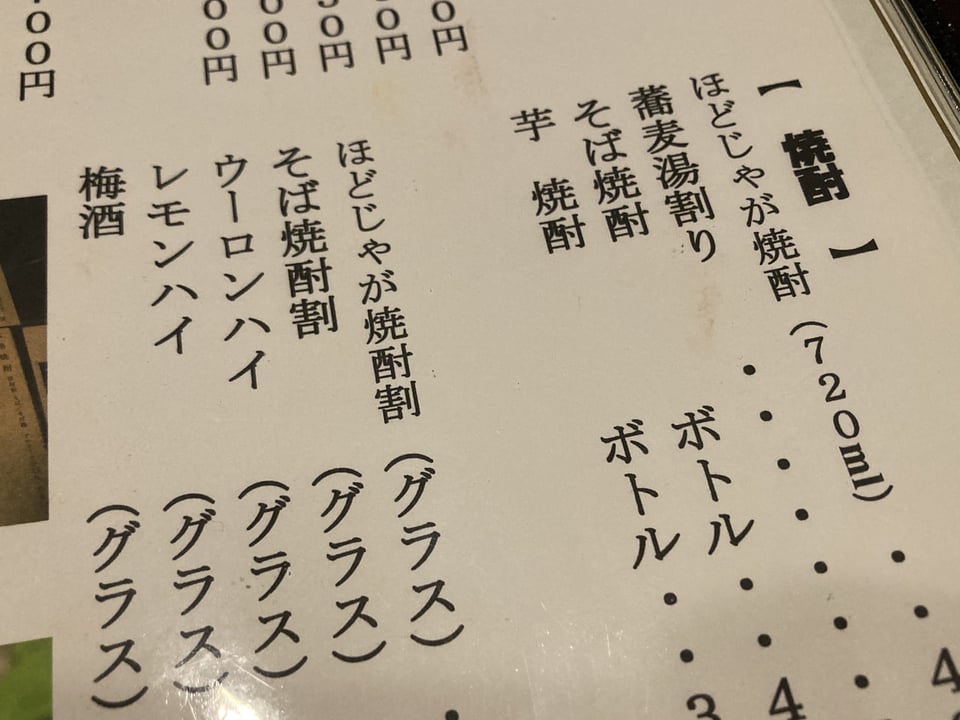 【 焼酎 】
ほどじゃが焼酎（720ml）・・4
蕎麦湯割り・・・・・・・
そば焼酎 ボトル・・4
芋 焼酎 ボトル・・3
ほどじゃが焼酎割（グラス）
そば焼酎割（グラス）
ウーロンハイ（グラス）
レモンハイ（グラス）
梅酒（グラス）
0円
0円
50円
00円
00円
400円